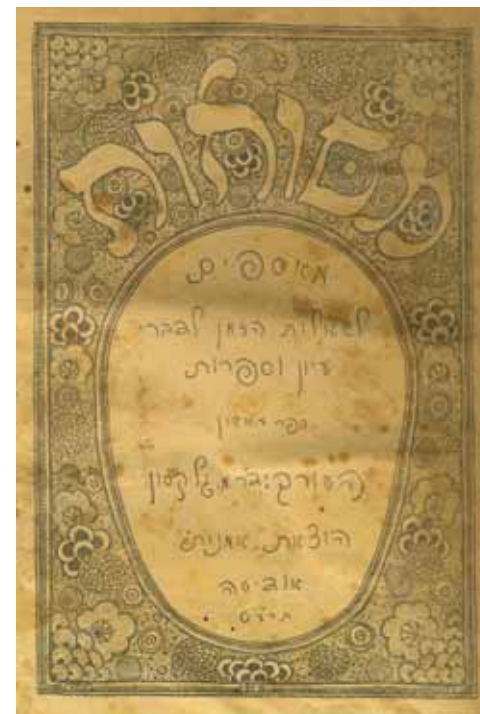 מסולות
מאספים
לשאלות הזמן לדברי
עיון וספרות
ספר ראשון
העורך:
הוצאת "אמנות"
אודיסה
תרע"ט